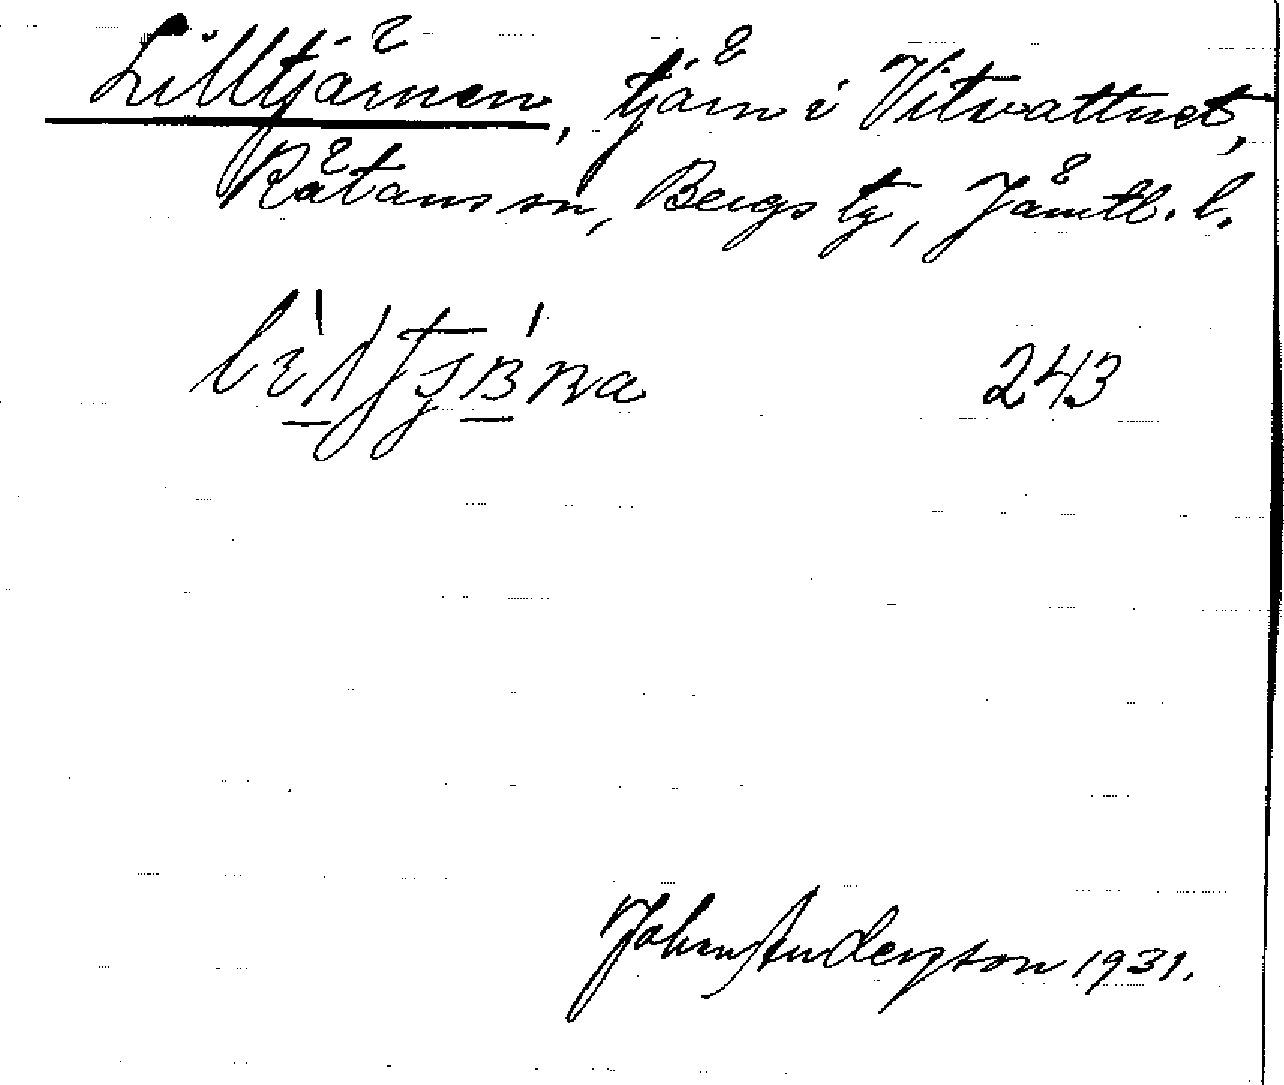 Lilltjärnen, tjärn i Vitvattnet,
Rätans sn, Bergs tg, Jämtl. l.
243
John Anderzson 1931.